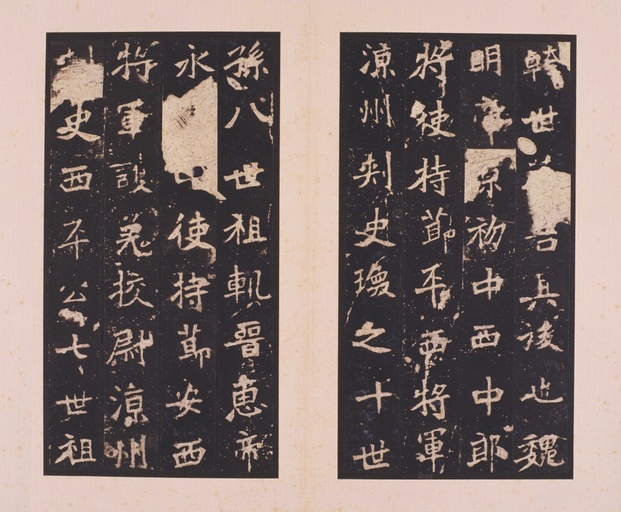 世君其後也魏
明帝景初中西中郎
將使持節平西將軍
涼州刾史瓊之十世
孫八世祖軌晉惠帝
永中使持節安西
將軍護羌校尉涼州
史西平公七世祖